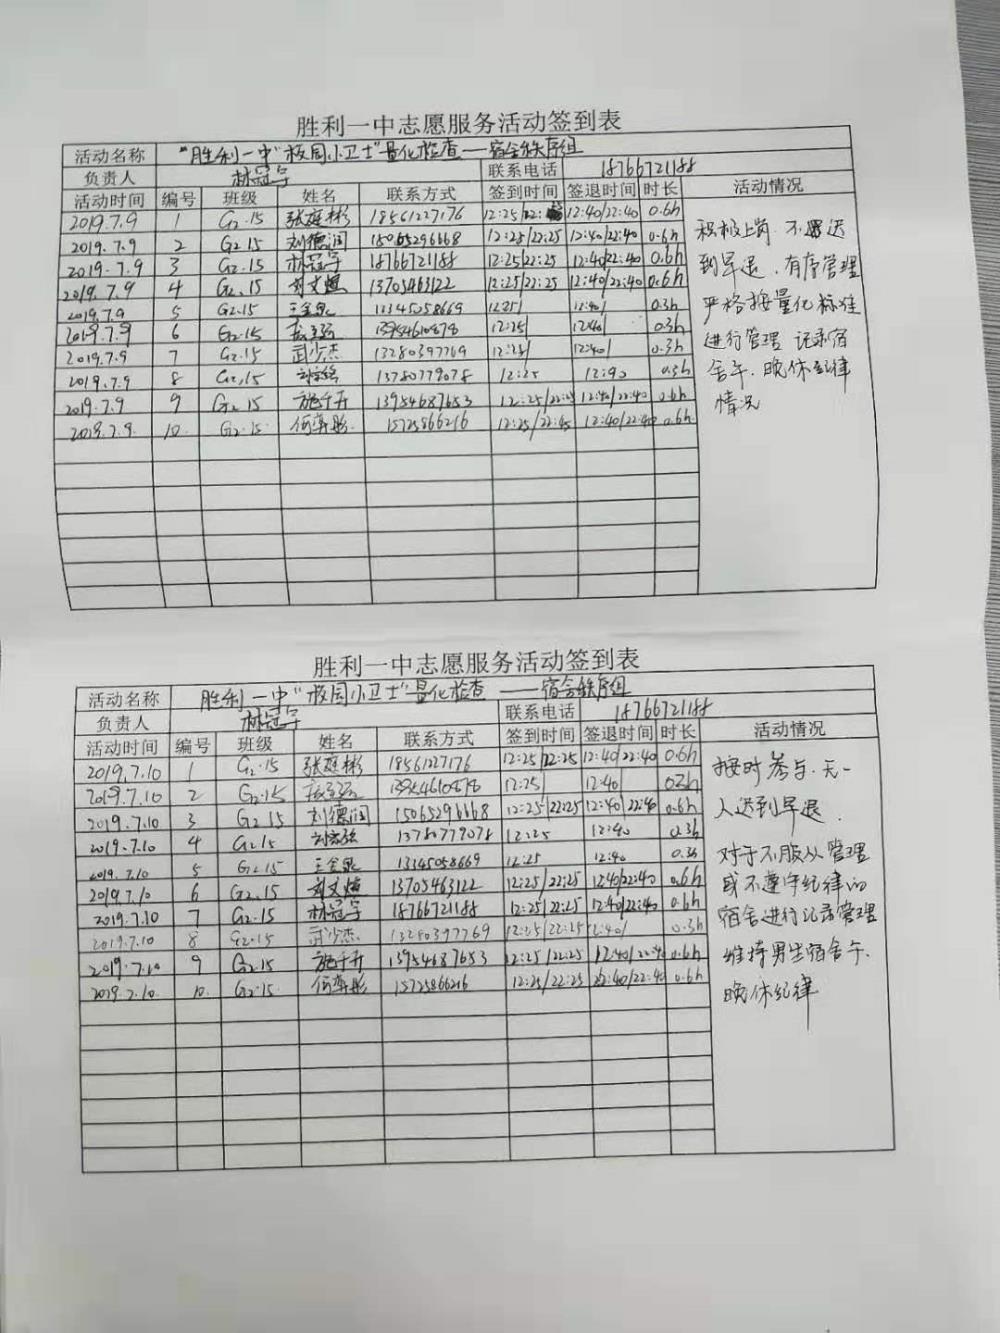 胜利一中志愿服务活动签到表
活动名称 "胜利一中"校园小卫士"量化检查——宿舍秩序组
负责人 林冠宇 联系电话 18766721188
活动时间 编号 班级 姓名 联系方式 签到时间 签退时间 时长 活动情况
2019.7.9 1 G2.15 张庭彬 18561227176 12:25/22: 12:40/22:40 0.6h
2019.7.9 2 G2.15 刘德润 15065296668 12:25/22:25 12:40/22:40 0.6h
2019.7.9 3 G2.15 林冠宇 18766721188 12:25/22:25 12:40/22:40 0.6h
2019.7.9 4 G2.15 刘文煊 13705463122 12:25/22:25 12:40/22:40 0.6h
2019.7.9 5 G2.15 王金泉 13345058669 12:25/ 12:40/ 0.3h
2019.7.9 6 G2.15 12:25/ 12:40/ 0.3h
2019.7.9 7 G2.15 武少杰 13280397769 12:25/ 12:40/ 0.3h
2019.7.9 8 G2.15 13780779078 12:25 12:40 0.3h
2019.7.9 9 G2.15 施千开 13954687653 12:25/22:25 12:40/22:40 0.6h
2019.7.9. 10. G2.15. 何奕彤 15725866216 12:25/22:45 12:40/22:40 0.6h
积极上岗 不迟
到早退、有序管理
严格按量化标准
进行管理 记录宿
舍午、晚休纪律
情况
胜利一中志愿服务活动签到表
活动名称 胜利一中"校园小卫士"量化检查——宿舍秩序组
负责人 林冠宇 联系电话 18766721188
活动时间 编号 班级 姓名 联系方式 签到时间 签退时间 时长 活动情况
2019.7.10 1 G2.15 张庭彬 18561227176 12:25/22:25 12:40/22:40 0.6h
2019.7.10 2 G2.15 12:25/ 12:40/ 0.3h
2019.7.10 3 G2.15 刘德润 15065296668 12:25/22:25 12:40/22:40 0.6h
2019.7.10 4 G2.15 13780779078 12:25 12:40 0.3h
2019.7.10 5 G2.15 王金泉 13345058669 12:25 12:40 0.3h
2019.7.10 6 G2.15 刘文煊 13705463122 12:25/22:25 12:40/22:40 0.6h
2019.7.10 7 G2.15 林冠宇 18766721188 12:25/22:25 12:40/22:40 0.6h
2019.7.10 8 G2.15 武少杰 13280397769 12:25/22:25 12:40/ 0.3h
2019.7.10 9 G2.15 施千开 13954687653 12:25/22:25 12:40/22:40 0.6h
2019.7.10. 10. G2.15. 何奕彤 15725866216 12:25/22:25 22:40/22:40 0.6h
按时参与、无一
人迟到早退.
对于不服从管理
或不遵守纪律的
宿舍进行记录管理
维持男生宿舍午、
晚休纪律